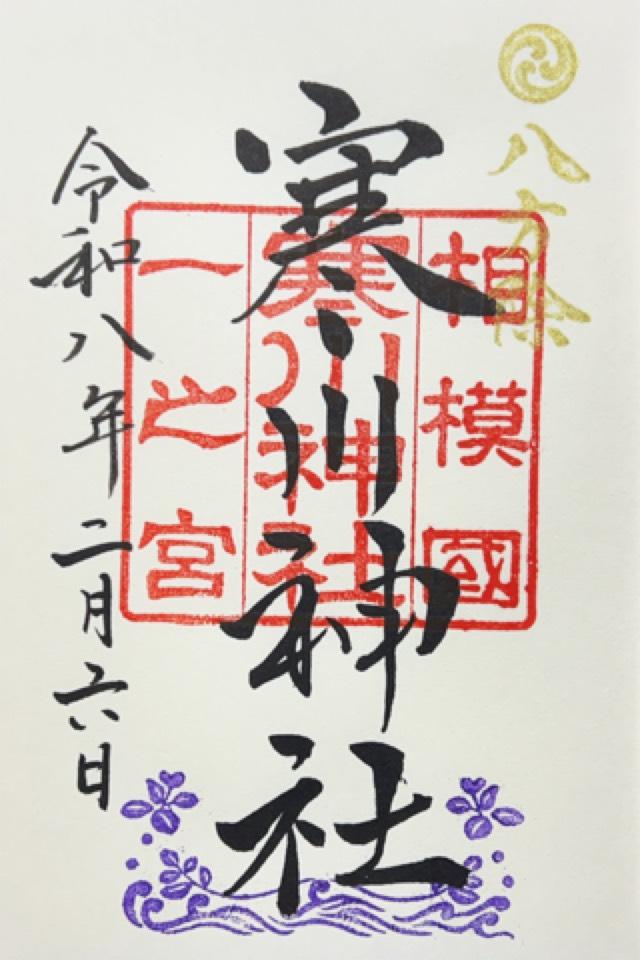 八方除
相模國
寒川神社
一之宮
寒川神社
令和八年二月六日